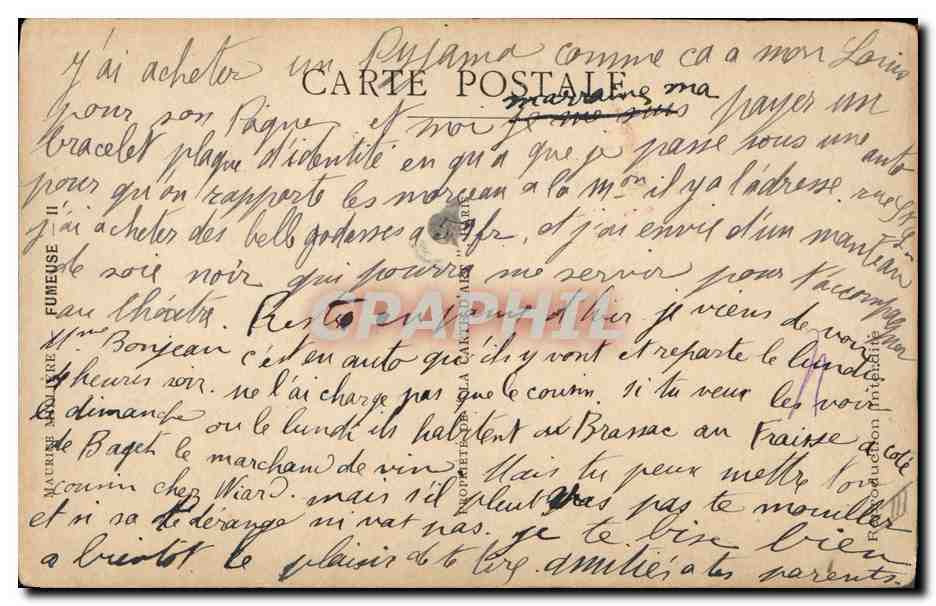 j'ai acheter un Pyjama comme ca a mon Louis
CARTE POSTALE
marraine ma
pour son Paque et moi je me suis payer un
bracelet plaque d'identité en qu a que je passe sous une auto
pour qu'on rapporte les morceau a la mon il y a l'adresse rue
j'ai acheter des belle godasses a fr, et j'ai envie d'un manteau
de soie noir qui pourra me servir pour t'accompagner
au théatre. Reste en panne d'hier je viens de voir
Mme Bonjean c'est en auto qu'ils y vont et reparte le lundi
4 heures soir. ne l'ai charge pas que le cousin. si tu veux les voir
le dimanche ou le lundi ils habitent a Brassac au Fraisse a coté
de Baget le marchand de vin Mais tu peux mettre ton
cousin chez Wiard. mais s'il pleut vas pas te mouiller
et si sa te dérange ni vat pas. je te bise bien
a bientot le plaisir de te lire amitiés a tes parents.
MAURICE MILLIERE FUMEUSE II
PROPRIETE DE "LA CARTE D'ART" PARIS
Reproduction interdite
CPAPHIL